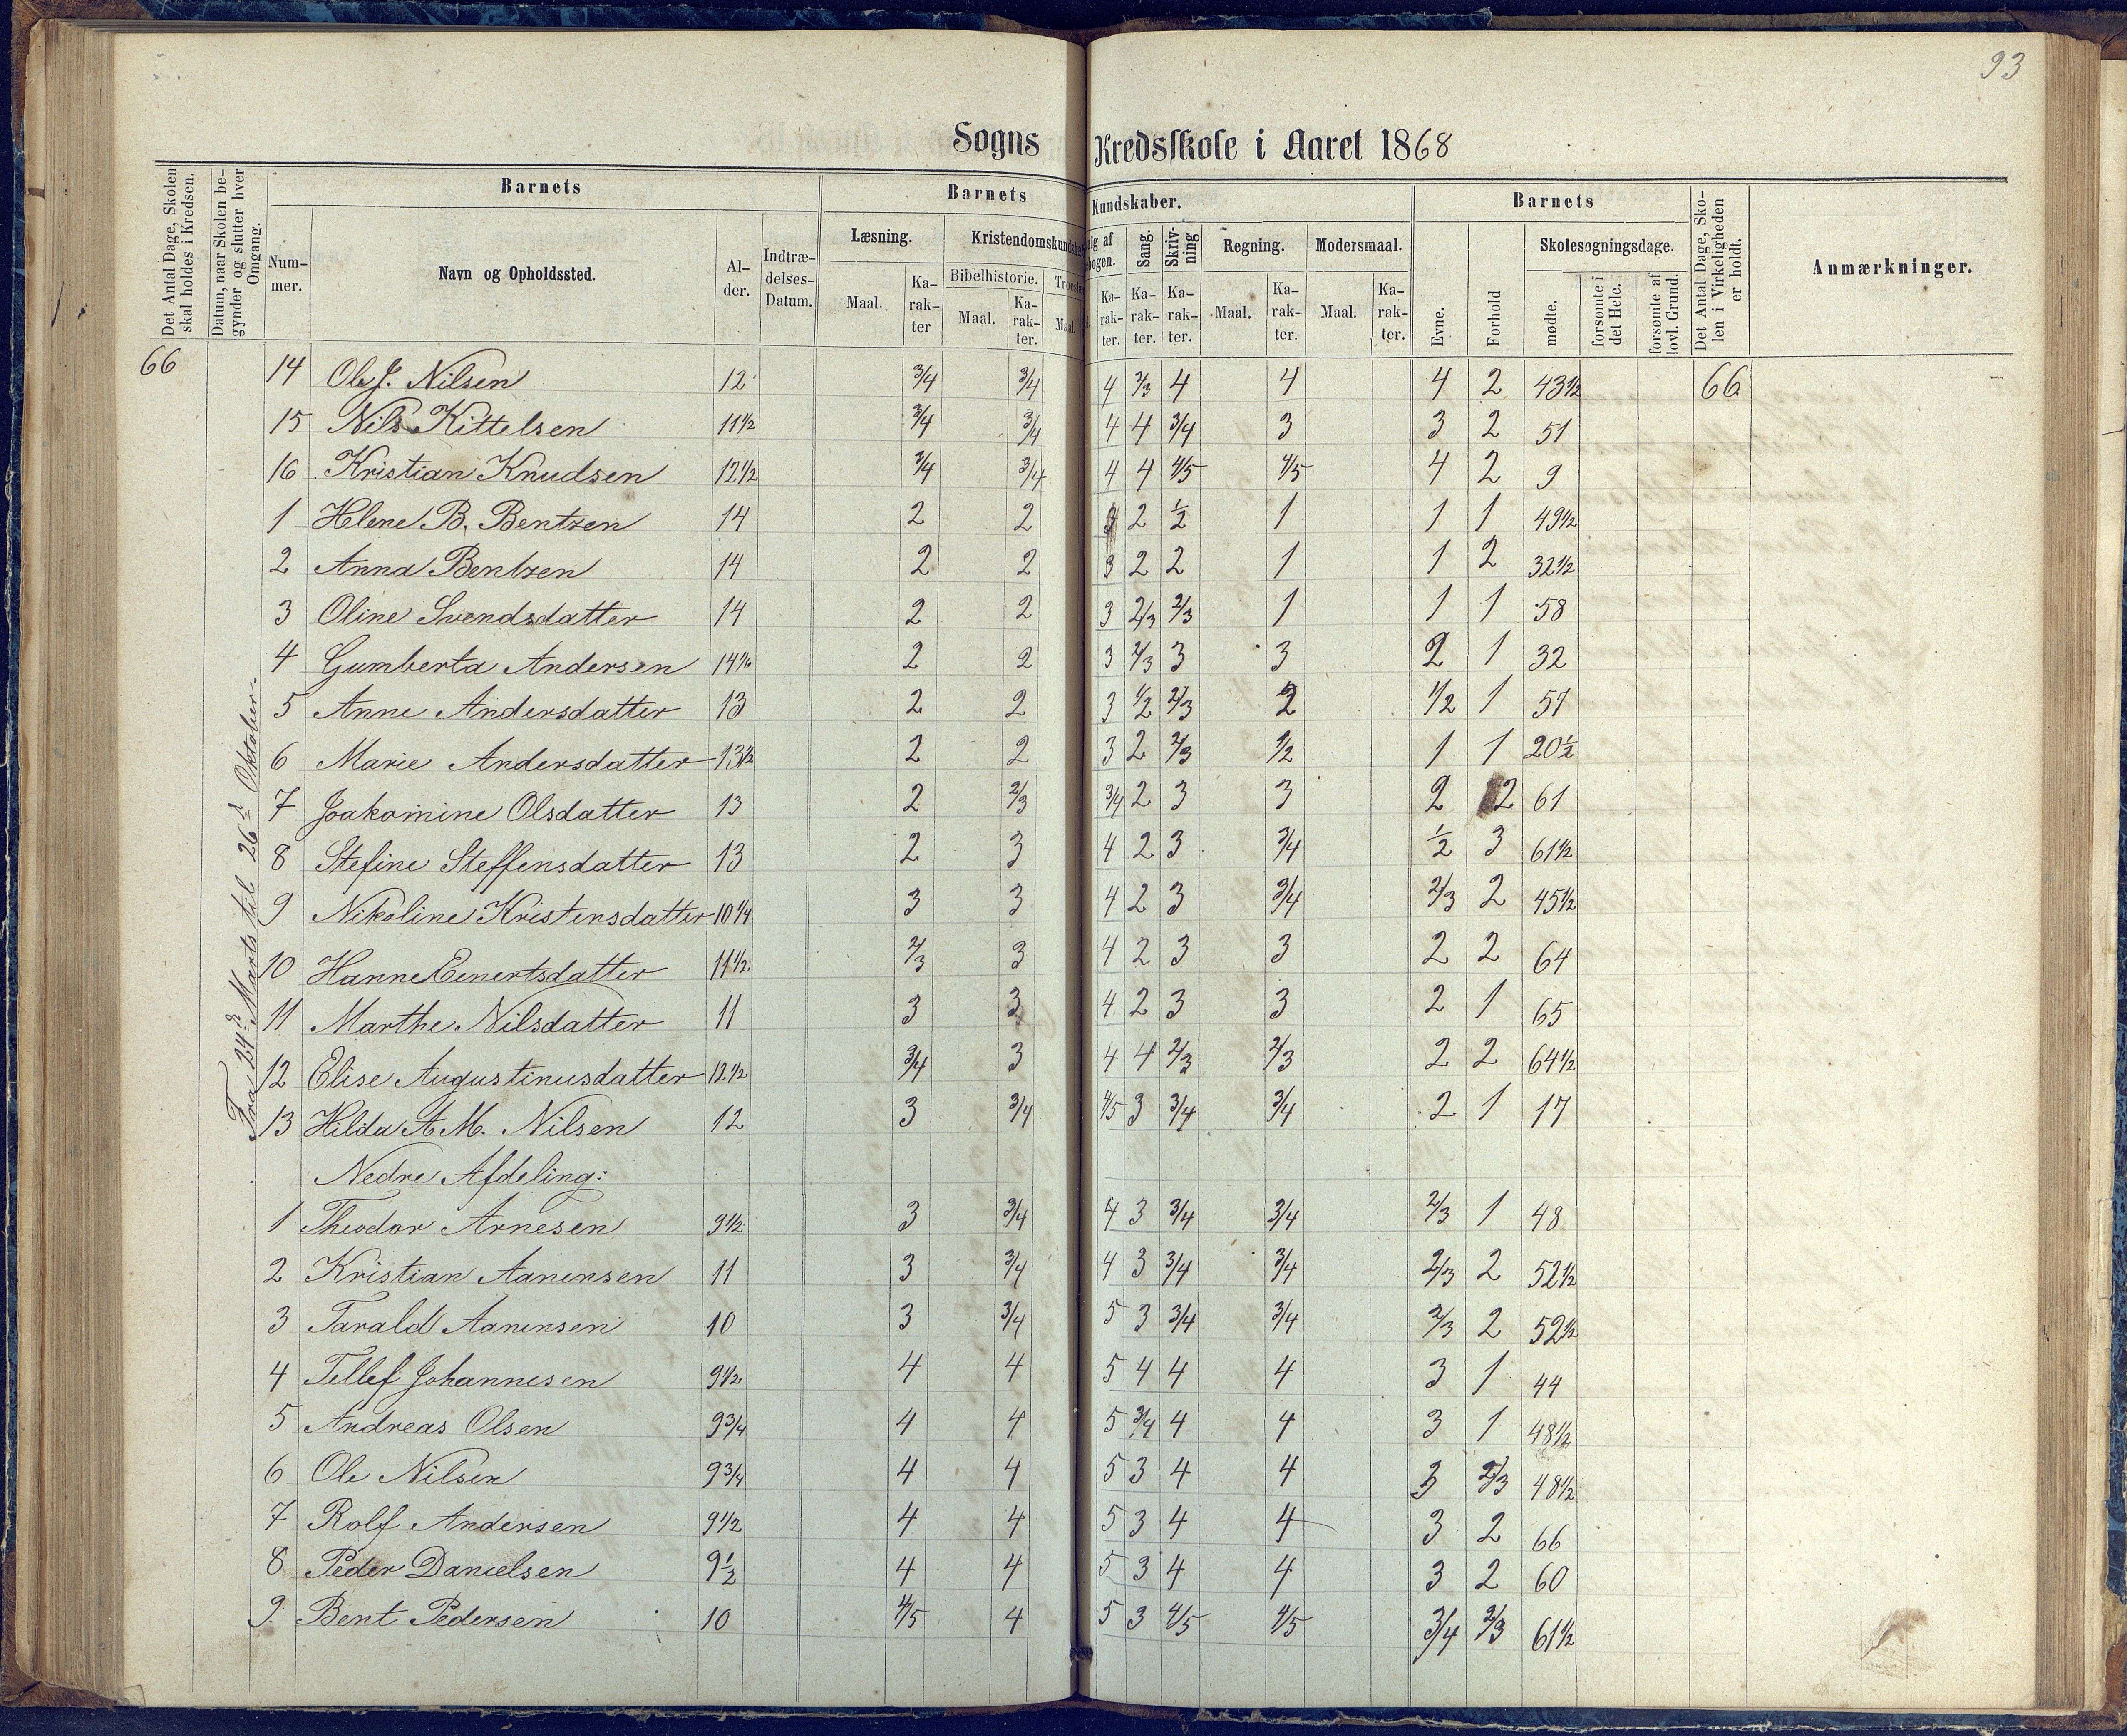 93
Sogns Kredsskole i Aaret 1868
Det Antal Dage, Skolen skal holdes i Kredsen.
Datum, naar Skolen begynder og slutter hver Omgang.
Barnets
Nummer.
Navn og Opholdssted.
Alder.
Indtrædelses-Datum.
Barnets Kundskaber.
Læsning.
Maal.
Karakter
Bibelhistorie.
Maal.
Karakter.
Maal.
Karakter.
Sang.
Karakter.
Skrivning
Karakter.
Regning.
Maal.
Karakter.
Modersmaal.
Maal.
Karakter.
Barnets
Evne.
Forhold
Skolesøgningsdage.
mødte.
forsømte i det Hele.
forsømte af lovl. Grund.
Det Antal Dage, Skolen i Virkeligheden er holdt.
Anmærkninger.
Fra 24de Marts til 26de Oktober.
66 14 Ole J. Nilsen 12 3/4 3/4 4 2/3 4 4 4 2 43 1/2 66
15 Nils Kittelsen 11 1/2 3/4 3/4 4 4 3/4 3 3 2 51
16 Kristian Knudsen 12 1/2 3/4 3/4 4 4 4/5 4/5 4 2 9
1 Helene B. Bentzen 14 2 2 2 1/2 1 1 1 49 1/2
2 Anna Bentzen 14 2 2 3 2 2 1 1 2 32 1/2
3 Oline Svendsdatter 14 2 2 3 2/3 2/3 1 1 1 58
4 Gumberta Andersen 2 2 3 2/3 3 3 2 1 32
5 Anne Andersdatter 13 2 2 3 1/2 2/3 2 1/2 1 57
6 Marie Andersdatter 13 1/2 2 2 3 2 2/3 1/2 1 1 20 1/2
7 Joakomine Olsdatter 13 2 2/3 3/4 2 3 3 2 2 61
8 Stefine Steffensdatter 13 2 3 4 2 3 3/4 1/2 3 61 1/2
9 Nikoline Kristensdatter 10 1/4 3 3 4 2 3 3/4 2/3 2 45 1/2
10 Hanne Einertsdatter 11 1/2 2/3 3 4 2 3 3 2 2 64
11 Marthe Nilsdatter 11 3 3 4 2 3 3 2 1 65
12 Elise Augustinusdatter 12 1/2 3/4 3 4 4 2/3 2/3 2 2 64 1/2
13 Hilda A. M. Nilsen 12 3 3/4 4/5 3 3/4 3/4 2 1 17
Nedre Afdeling:
1 Theodor Arnesen 9 1/2 3 3/4 4 3 3/4 3/4 2/3 1 48
2 Kristian Aanensen 11 3 3/4 4 3 3/4 3/4 2/3 2 52 1/2
3 Tarald Aanensen 10 3 3/4 5 3 3/4 3/4 2/3 2 52 1/2
4 Tellef Johannesen 9 1/2 4 4 5 4 4 4 3 1 44
5 Andreas Olsen 9 3/4 4 4 5 3/4 4 4 3 1 48 1/2
6 Ole Nilsen 9 3/4 4 4 5 3 4 4 3 2/3 48 1/2
7 Rolf Andersen 9 1/2 4 4 5 3 4 4 3 2 66
8 Peder Danielsen 9 1/2 4 4 5 3 4 4 3 2 60
9 Bent Pedersen 10 4/5 4 5 3 4/5 4/5 3/4 2/3 61 1/2